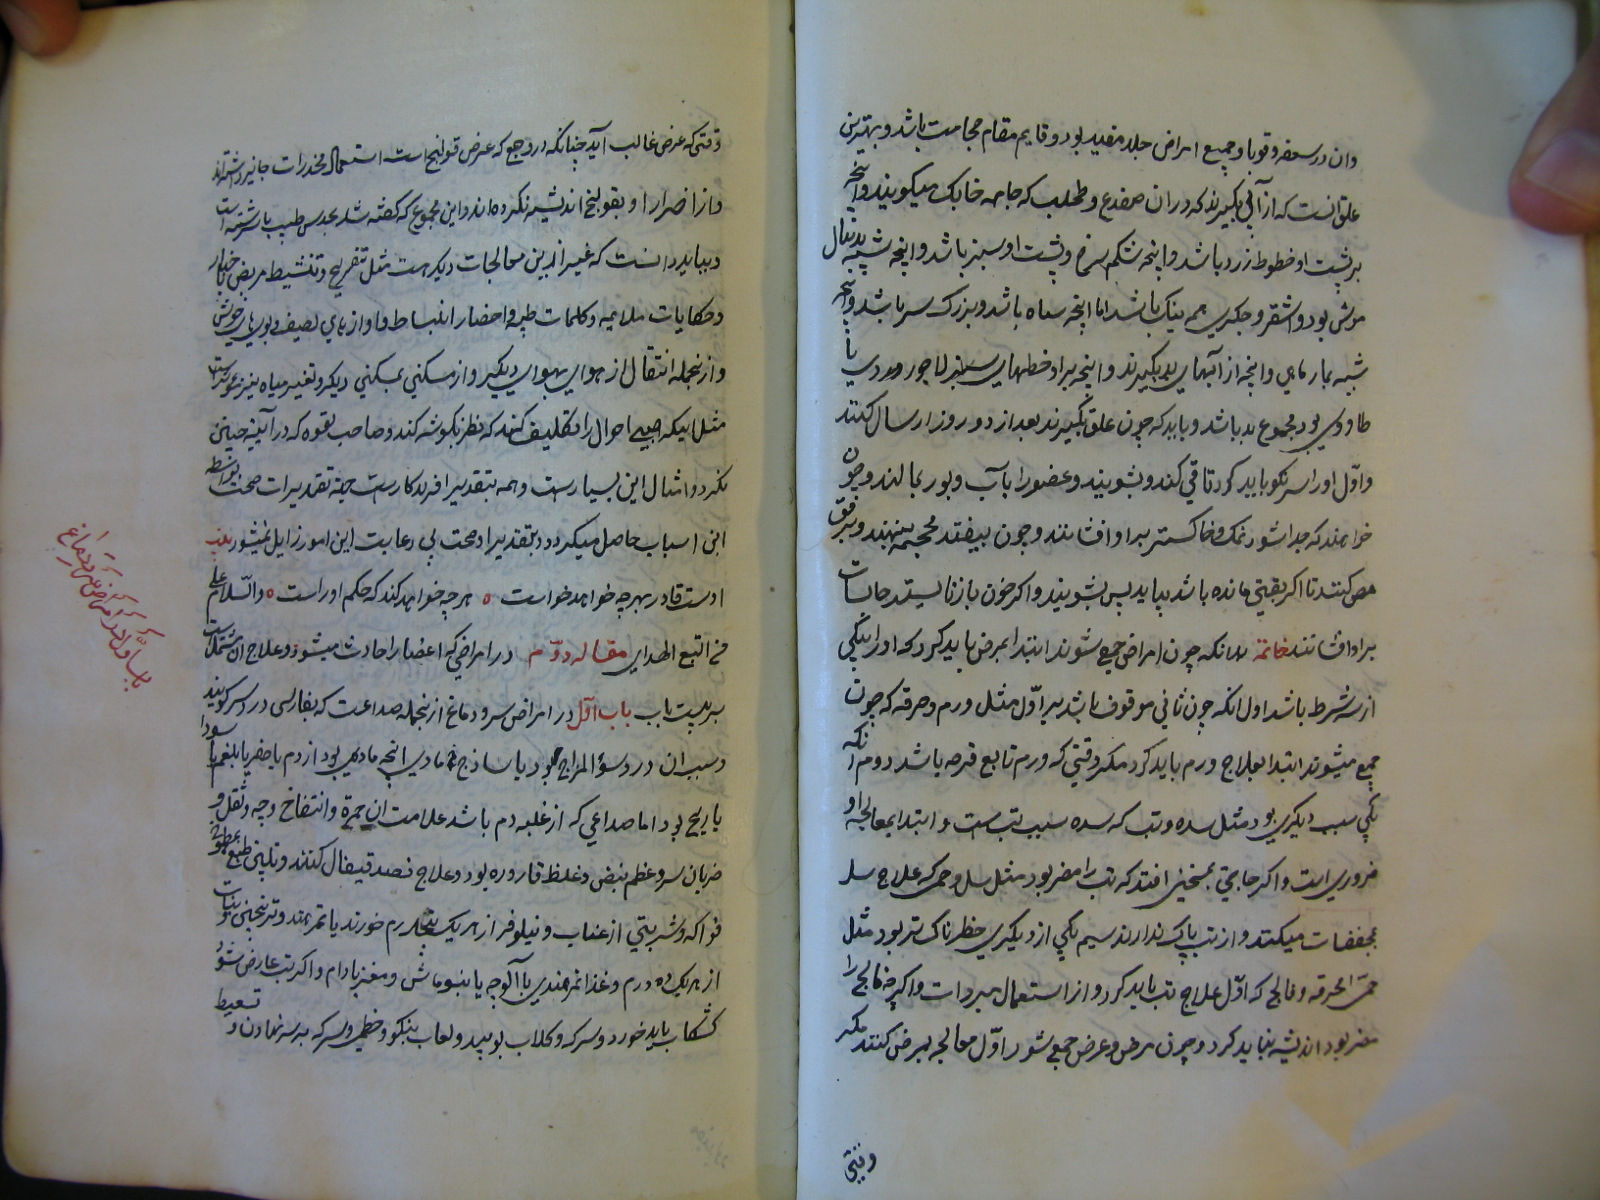 وان در سعفه و قوبا و جمیع امراض جلد مفید بود و قایم مقام حجامت باشد و بهترین
علق انست که از آبی بگیرند که دران ضفدع و طحلب که جامه خابک میکویند و انچه
بر پشت او خطوط زرد باشد و انچه شکم سرخ و پشت او سبز باشد و انچه شبیه بدنبال
موش بود و اشقر و جکری همه نیک باشد اما انچه سیاه باشد و بزرک سر باشد و انچه
شبیه بمار ماهی و انچه از آبهای بد بگیرند و انچه براو خطهای سبز لاجوردی یا
طاوسی بود مجموع بد باشد و باید که چون علق بگیرند بعد از دو روز ارسال کنند
و اوّل اورا سرنکو باید کرد تا قی کند و بشویند و عضو را بآب و بوره بمالند و چون
خواهند که جدا شود نمک و خاکستر براو افشانند و چون بیفتد محجمه بنهند و برفق
مص کنند تا اکر بقیتی مانده باشد بیاید پس بشویند و اکر خون باز نایستد
براو افشانند خاتمه بدانکه چون امراض جمع شوند ابتدا بمرضی باید کرد که اورا یکی
از سه شرط باشد اول انکه چون ثانی موقوف باشد بر اوّل مثل ورم و قرحه که چون
جمع میشوند ابتدا بعلاج ورم باید کرد مکر وقتی که ورم تابع قرحه باشد دوم انکه
یکی سبب دیکری بود مثل سده و تب که سده سبب تب است و ابتدا بمعالجه او
ضروری است و اکر حاجتی بمسخنی افتد که تب را مضر بود مثل سل و حمی که علاج سل
بمجففات میکنند و از تب باک ندارند سیم یکی از دیکری خطرناک تر بود مثل
حمی محرقه و فالج که اوّل علاج تب باید کرد و از استعمال مبردات و اکرچه فالج را
مضر بود اندیشه نباید کرد و چون مرض و عرض جمع شود اوّل معالجه بمرض کنند مکر
وقتی
وقتی که عرض غالب آید چنانکه در وجع که عرض قولنج است استعمال مخدرات جایز داشته اند
و از اضرار او بقولنج اندیشه نکرده اند و این مجموع که کفته شد بحدس طبیب باز بسته است
و بباید دانست که غیر از این معالجات دیکر هست مثل تفریح و تنشیط مریض باخبار
و حکایات ملایمه و کلمات طیبه و احضار انبساط و آوازهای لطیف و بویهای خوش
و ازنجمله انتقال از هوای بهوای دیگر و از مسکنی بمسکنی دیکر و تغییر میاه نیز
مثل اینکه صبی احوال را تکلیف کنند که نظر بکوشه کند و صاحب لقوه که در آئینه چینی
نکرد و امثال این بسیار است و همه بتقدیر افریدکار است چه تقدیرات صحت بواسطه
این اسباب حاصل میکردد و بتقدیر او صحت بی رعایت این امور زایل نمیشود
اوست قادر بهر چه خواهد خواست ه هر چه خواهد کند که حکم اوراست ه والسّلام علی
من اتبع الهدی مقاله دوّم در امراضی که اعضا را حادث میشود و علاج ان مشتملست
بر بیست باب باب اوّل در امراض سر و دماغ ازنجمله صداعست که بفارسی درد سر کویند
و سبب ان درد سؤ المزاج بود یا ساذج یا مادی انچه مادی بود از دم یا صفرا یا بلغم یا سودا
یا ریح بود اما صداعی که از غلبه دم باشد علامت ان حمرة و انتفاخ وجه و ثقل و
ضربان سر و عظم نبض و غلظ قاروره بود و علاج فصد قیفال کنند و تلیین طبع بمطبوخ
فواکه و شربتی از عناب و نیلوفر از هر یک پنجدرم خورند یا تمر هند و ترنجبین و نبات
از هر یک ده درم و غذا تمر هندی با آلوچه یا بنیوماش و مغز بادام و اکر تب عارض شود
کشکاب باید خورد و سرکه و کلاب بویید و لعاب بنکو و خطمی و سرکه بر سر نهادن و تسعیط
باب اول در امراض سر و دماغ